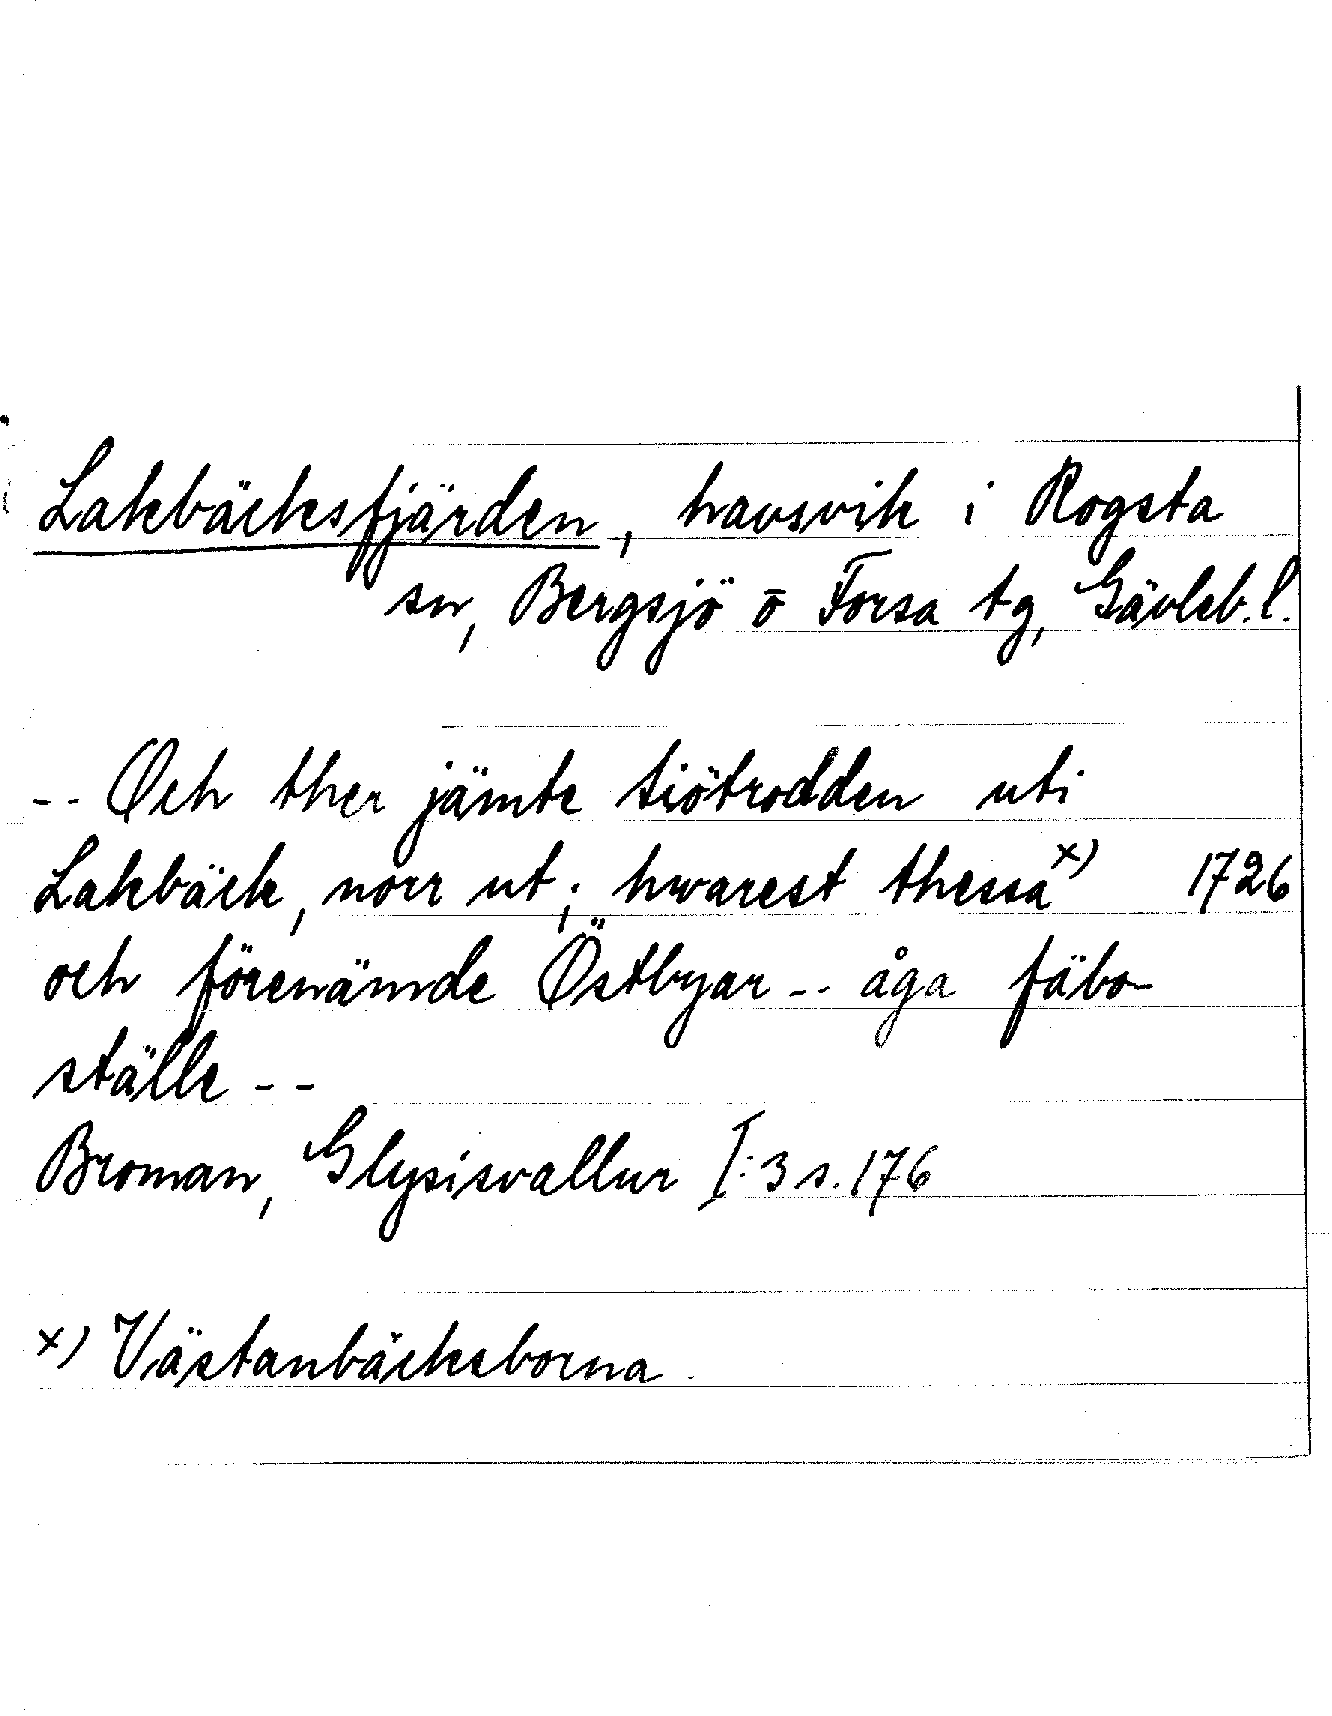 Lakbäcksfjärden, havsvik i Rogsta
sn, Bergsjö o Forsa tg, Gävleb.l.
-- Och ther jämte siötrodden uti
Lakbäck, norr ut; hwarest thessa x) 1726
och förenämde Östbyar -- åga fäbo-
ställe --
Broman, Glysisvallur I:3 s. 176
x) Västanbäcksborna